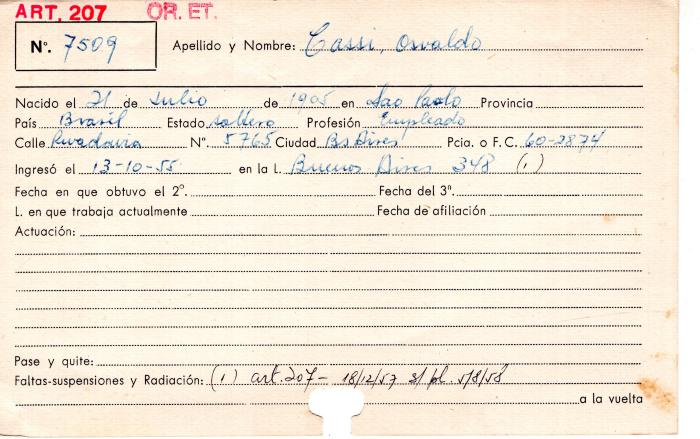 ART. 207 OR. ET.
Nº. 7509 Apellido y Nombre: Cassi, Osvaldo
Nacido el 21 de Julio de 1905 en Sao Paolo Provincia
País Brasil Estado soltero Profesión Empleado
Calle Rivadavia Nº. 5765 Ciudad Bs Aires Pcia. o F.C. 60-2874
Ingresó el 13-10-55 en la L. Buenos Aires 348 (1)
Fecha en que obtuvo el 2º. Fecha del 3º.
L. en que trabaja actualmente Fecha de afiliación
Actuación:
Pase y quite:
Faltas-suspensiones y Radiación: (1) art. 207 - 18/12/57 s/ pl. 5/8/58
a la vuelta